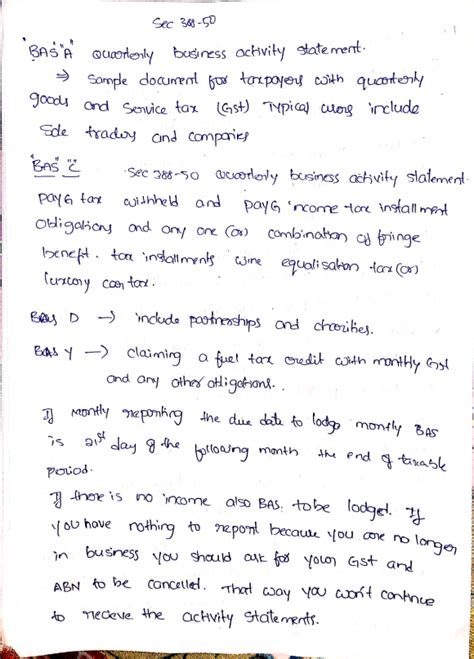 Sec 388-50
"BAS" "A" quarterly business activity statement.
⇒ Sample document for taxpayers with quarterly
goods and Service tax (Gst) Typical users include
Sole traders and companies
"BAS" "C" . Sec 388-50 quarterly business activity statement.
PAYG tax withheld and PAYG income tax installment
Obligations and any one (or) combination of fringe
benefit. tax installments wine equalisation tax (or)
luxury car tax.
BAS D → include partnerships and charities.
BAS Y → claiming a fuel tax credit with monthly Gst
and any other obligations..
If montly reporting the due date to lodge montly BAS
is 21st day of the following month the end of taxable
period.
If there is no income also BAS. to be lodget. If
you have nothing to report because you are no longer
in business you should ask for your Gst and
ABN to be cancelled. That way you won't continue
to recieve the activity statements.